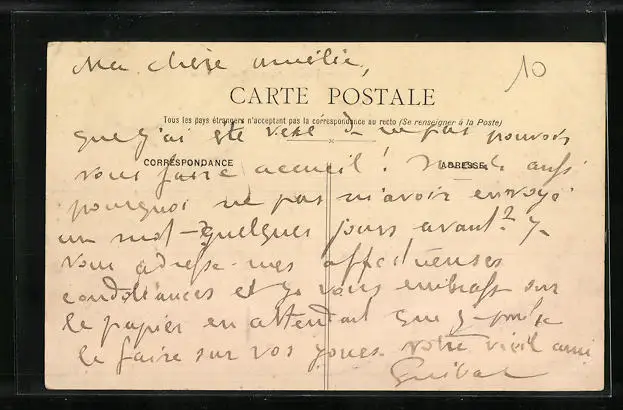 Ma chère Amélie,
10
CARTE POSTALE
Tous les pays étrangers n'acceptent pas la correspondance au recto (Se renseigner à la Poste)
que j'ai été vexé de ne pas pouvoir
CORRESPONDANCE
ADRESSE
vous faire accueil ! aussi
pourquoi ne pas m'avoir envoyé
un mot quelques jours avant ? Je
vous adresse mes affectueuses
condoléances et je vous embrasse sur
le papier en attendant que je puisse
le faire sur vos joues. Votre vieil ami